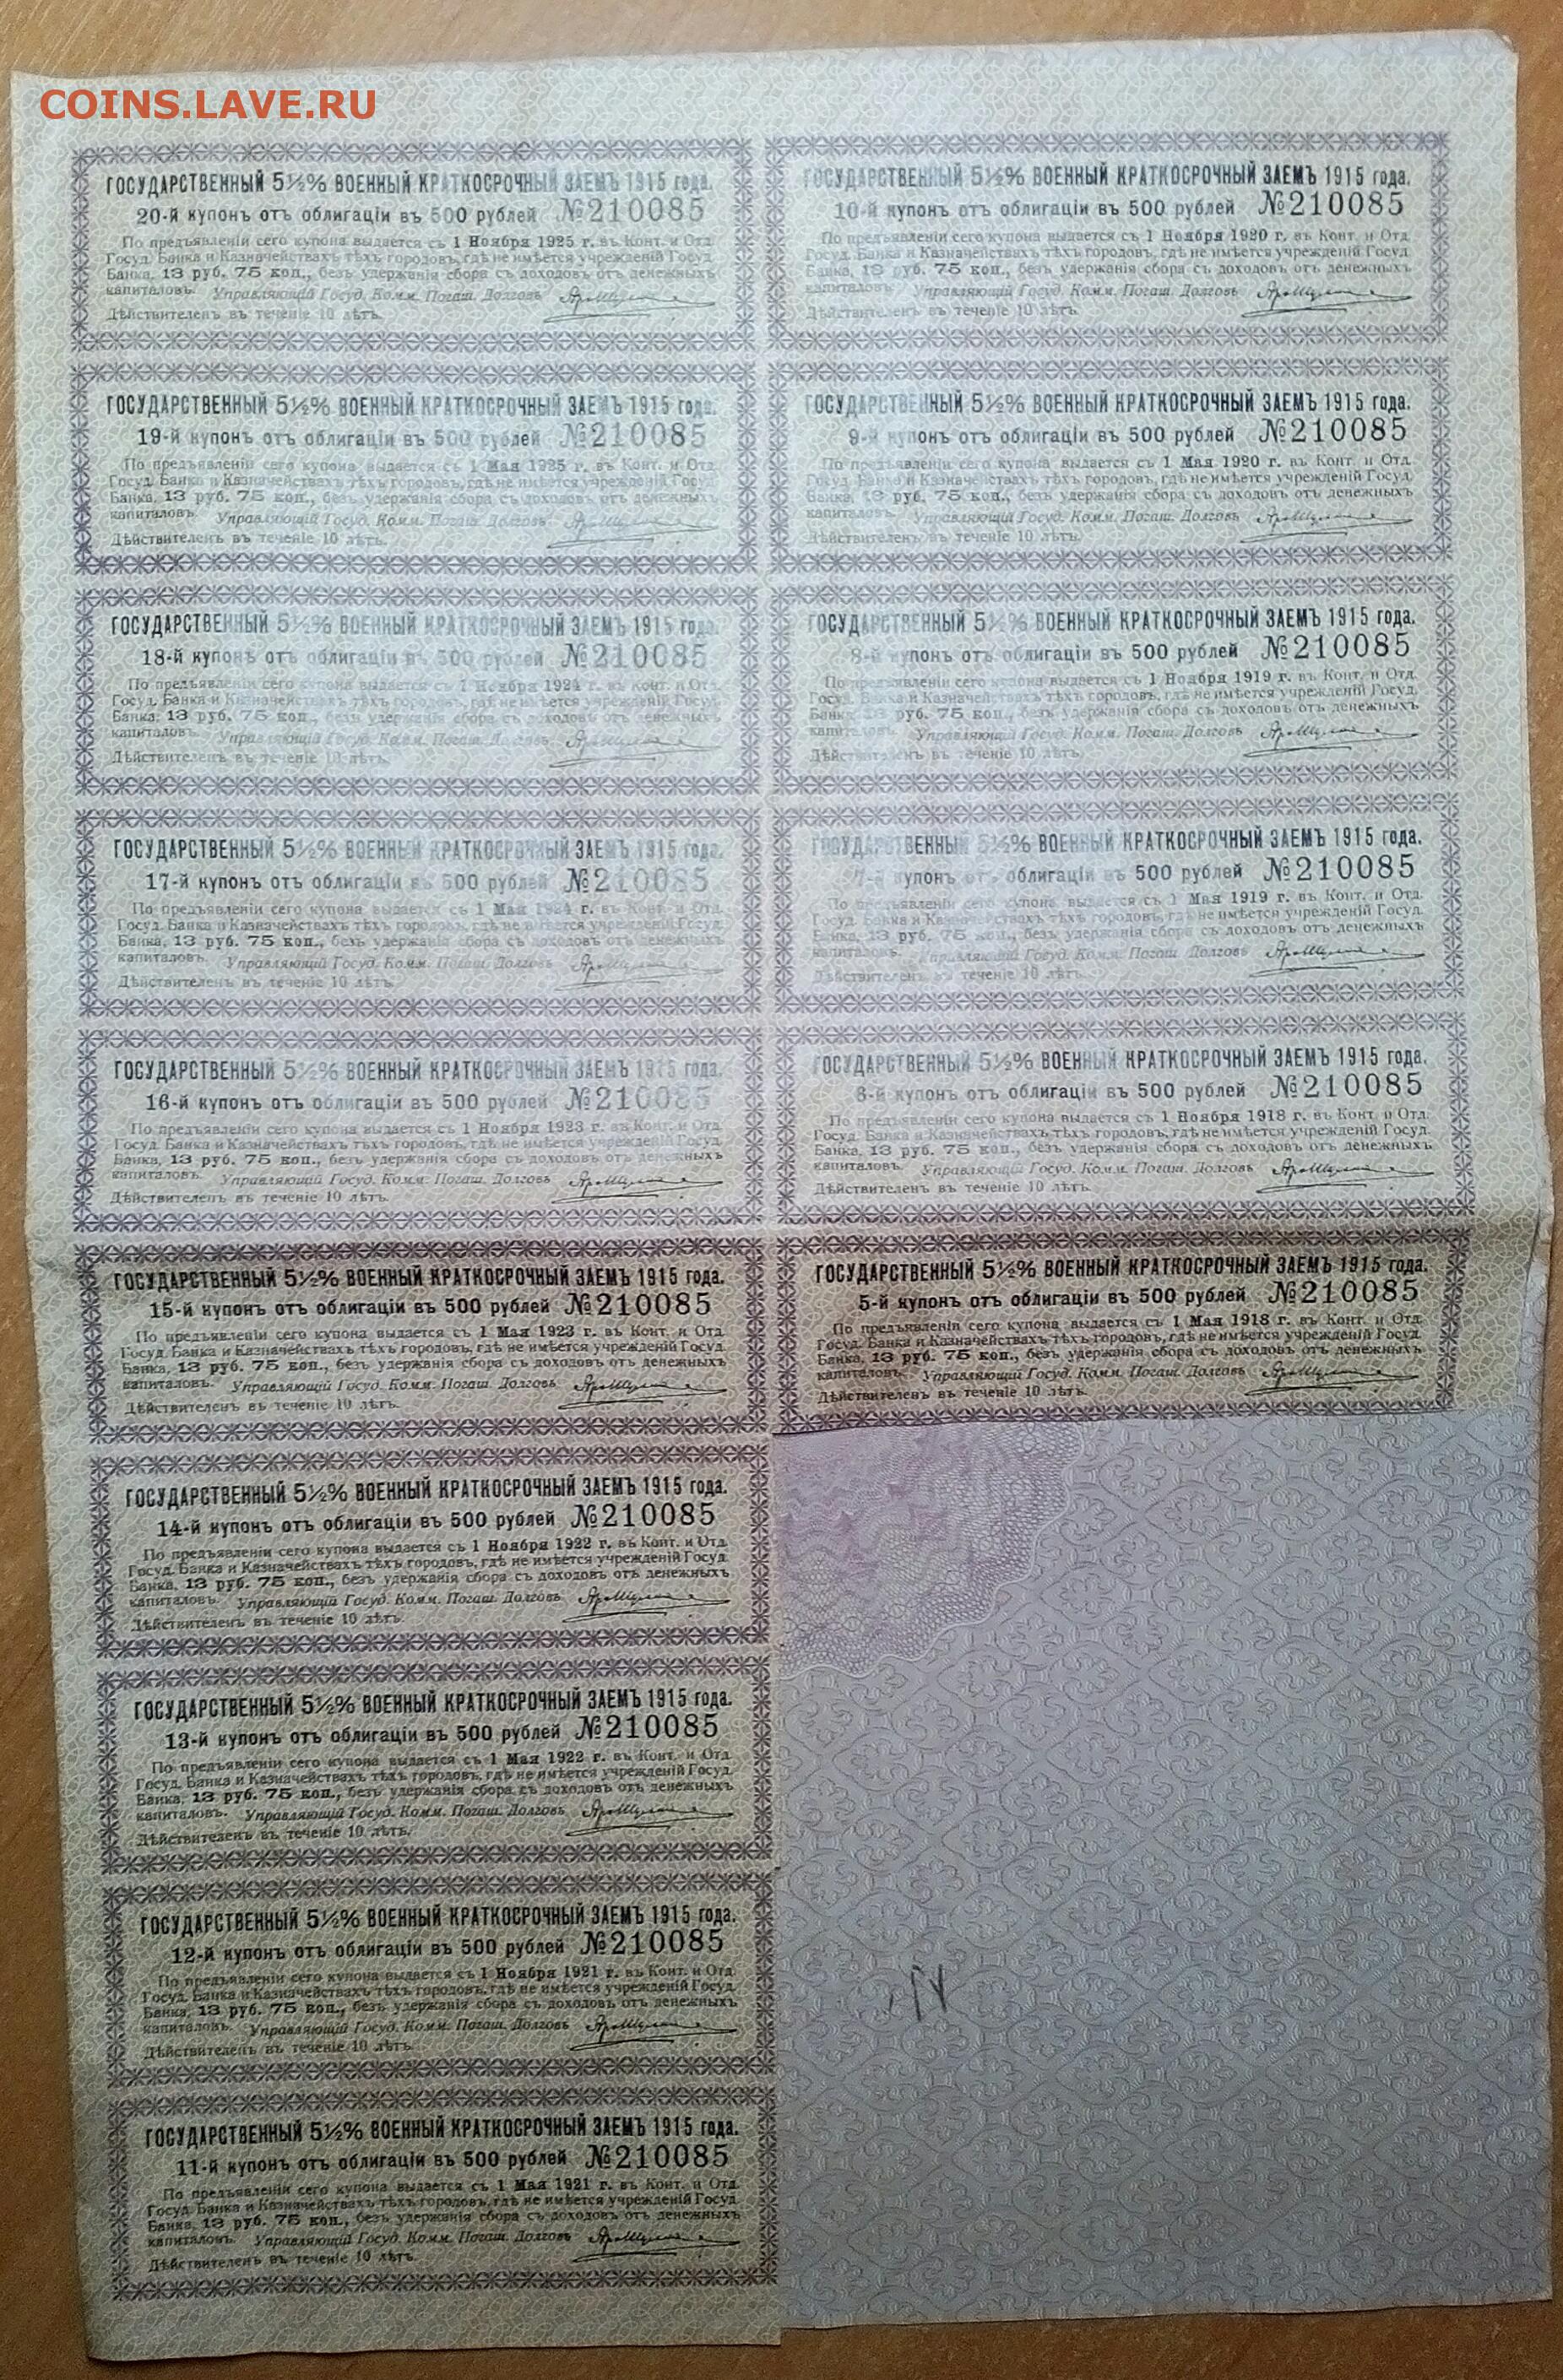 COINS.LAVE.RU
ГОСУДАРСТВЕННЫЙ 5½% ВОЕННЫЙ КРАТКОСРОЧНЫЙ ЗАЕМЪ 1915 года.
20-й купонъ отъ облигаціи въ 500 рублей №210085
По предъявленіи сего купона выдается съ 1 Ноября 1925 г. въ Конт. и Отд.
Госуд. Банка и Казначействахъ тѣхъ городовъ, гдѣ не имѣется учрежденій Госуд.
Банка, 13 руб. 75 коп., безъ удержанія сбора съ доходовъ отъ денежныхъ
капиталовъ. Управляющій Госуд. Комм. Погаш. Долговъ
Дѣйствителенъ въ теченіе 10 лѣтъ.
ГОСУДАРСТВЕННЫЙ 5½% ВОЕННЫЙ КРАТКОСРОЧНЫЙ ЗАЕМЪ 1915 года.
19-й купонъ отъ облигаціи въ 500 рублей №210085
По предъявленіи сего купона выдается съ 1 Мая 1925 г. въ Конт. и Отд.
Госуд. Банка и Казначействахъ тѣхъ городовъ, гдѣ не имѣется учрежденій Госуд.
Банка, 13 руб. 75 коп., безъ удержанія сбора съ доходовъ отъ денежныхъ
капиталовъ. Управляющій Госуд. Комм. Погаш. Долговъ
Дѣйствителенъ въ теченіе 10 лѣтъ.
ГОСУДАРСТВЕННЫЙ 5½% ВОЕННЫЙ КРАТКОСРОЧНЫЙ ЗАЕМЪ 1915 года.
18-й купонъ отъ облигаціи въ 500 рублей №210085
По предъявленіи сего купона выдается съ 1 Ноября 1924 г. въ Конт. и Отд.
Госуд. Банка и Казначействахъ тѣхъ городовъ, гдѣ не имѣется учрежденій Госуд.
Банка, 13 руб. 75 коп., безъ удержанія сбора съ доходовъ отъ денежныхъ
капиталовъ. Управляющій Госуд. Комм. Погаш. Долговъ
Дѣйствителенъ въ теченіе 10 лѣтъ.
ГОСУДАРСТВЕННЫЙ 5½% ВОЕННЫЙ КРАТКОСРОЧНЫЙ ЗАЕМЪ 1915 года.
17-й купонъ отъ облигаціи въ 500 рублей №210085
По предъявленіи сего купона выдается съ 1 Мая 1924 г. въ Конт. и Отд.
Госуд. Банка и Казначействахъ тѣхъ городовъ, гдѣ не имѣется учрежденій Госуд.
Банка, 13 руб. 75 коп., безъ удержанія сбора съ доходовъ отъ денежныхъ
капиталовъ. Управляющій Госуд. Комм. Погаш. Долговъ
Дѣйствителенъ въ теченіе 10 лѣтъ.
ГОСУДАРСТВЕННЫЙ 5½% ВОЕННЫЙ КРАТКОСРОЧНЫЙ ЗАЕМЪ 1915 года.
16-й купонъ отъ облигаціи въ 500 рублей №210085
По предъявленіи сего купона выдается съ 1 Ноября 1923 г. въ Конт. и Отд.
Госуд. Банка и Казначействахъ тѣхъ городовъ, гдѣ не имѣется учрежденій Госуд.
Банка, 13 руб. 75 коп., безъ удержанія сбора съ доходовъ отъ денежныхъ
капиталовъ. Управляющій Госуд. Комм. Погаш. Долговъ
Дѣйствителенъ въ теченіе 10 лѣтъ.
ГОСУДАРСТВЕННЫЙ 5½% ВОЕННЫЙ КРАТКОСРОЧНЫЙ ЗАЕМЪ 1915 года.
15-й купонъ отъ облигаціи въ 500 рублей №210085
По предъявленіи сего купона выдается съ 1 Мая 1923 г. въ Конт. и Отд.
Госуд. Банка и Казначействахъ тѣхъ городовъ, гдѣ не имѣется учрежденій Госуд.
Банка, 13 руб. 75 коп., безъ удержанія сбора съ доходовъ отъ денежныхъ
капиталовъ. Управляющій Госуд. Комм. Погаш. Долговъ
Дѣйствителенъ въ теченіе 10 лѣтъ.
ГОСУДАРСТВЕННЫЙ 5½% ВОЕННЫЙ КРАТКОСРОЧНЫЙ ЗАЕМЪ 1915 года.
14-й купонъ отъ облигаціи въ 500 рублей №210085
По предъявленіи сего купона выдается съ 1 Ноября 1922 г. въ Конт. и Отд.
Госуд. Банка и Казначействахъ тѣхъ городовъ, гдѣ не имѣется учрежденій Госуд.
Банка, 13 руб. 75 коп., безъ удержанія сбора съ доходовъ отъ денежныхъ
капиталовъ. Управляющій Госуд. Комм. Погаш. Долговъ
Дѣйствителенъ въ теченіе 10 лѣтъ.
ГОСУДАРСТВЕННЫЙ 5½% ВОЕННЫЙ КРАТКОСРОЧНЫЙ ЗАЕМЪ 1915 года.
13-й купонъ отъ облигаціи въ 500 рублей №210085
По предъявленіи сего купона выдается съ 1 Мая 1922 г. въ Конт. и Отд.
Госуд. Банка и Казначействахъ тѣхъ городовъ, гдѣ не имѣется учрежденій Госуд.
Банка, 13 руб. 75 коп., безъ удержанія сбора съ доходовъ отъ денежныхъ
капиталовъ. Управляющій Госуд. Комм. Погаш. Долговъ
Дѣйствителенъ въ теченіе 10 лѣтъ.
ГОСУДАРСТВЕННЫЙ 5½% ВОЕННЫЙ КРАТКОСРОЧНЫЙ ЗАЕМЪ 1915 года.
12-й купонъ отъ облигаціи въ 500 рублей №210085
По предъявленіи сего купона выдается съ 1 Ноября 1921 г. въ Конт. и Отд.
Госуд. Банка и Казначействахъ тѣхъ городовъ, гдѣ не имѣется учрежденій Госуд.
Банка, 13 руб. 75 коп., безъ удержанія сбора съ доходовъ отъ денежныхъ
капиталовъ. Управляющій Госуд. Комм. Погаш. Долговъ
Дѣйствителенъ въ теченіе 10 лѣтъ.
ГОСУДАРСТВЕННЫЙ 5½% ВОЕННЫЙ КРАТКОСРОЧНЫЙ ЗАЕМЪ 1915 года.
11-й купонъ отъ облигаціи въ 500 рублей №210085
По предъявленіи сего купона выдается съ 1 Мая 1921 г. въ Конт. и Отд.
Госуд. Банка и Казначействахъ тѣхъ городовъ, гдѣ не имѣется учрежденій Госуд.
Банка, 13 руб. 75 коп., безъ удержанія сбора съ доходовъ отъ денежныхъ
капиталовъ. Управляющій Госуд. Комм. Погаш. Долговъ
Дѣйствителенъ въ теченіе 10 лѣтъ.
ГОСУДАРСТВЕННЫЙ 5½% ВОЕННЫЙ КРАТКОСРОЧНЫЙ ЗАЕМЪ 1915 года.
10-й купонъ отъ облигаціи въ 500 рублей №210085
По предъявленіи сего купона выдается съ 1 Ноября 1920 г. въ Конт. и Отд.
Госуд. Банка и Казначействахъ тѣхъ городовъ, гдѣ не имѣется учрежденій Госуд.
Банка, 13 руб. 75 коп., безъ удержанія сбора съ доходовъ отъ денежныхъ
капиталовъ. Управляющій Госуд. Комм. Погаш. Долговъ
Дѣйствителенъ въ теченіе 10 лѣтъ.
ГОСУДАРСТВЕННЫЙ 5½% ВОЕННЫЙ КРАТКОСРОЧНЫЙ ЗАЕМЪ 1915 года.
9-й купонъ отъ облигаціи въ 500 рублей №210085
По предъявленіи сего купона выдается съ 1 Мая 1920 г. въ Конт. и Отд.
Госуд. Банка и Казначействахъ тѣхъ городовъ, гдѣ не имѣется учрежденій Госуд.
Банка, 13 руб. 75 коп., безъ удержанія сбора съ доходовъ отъ денежныхъ
капиталовъ. Управляющій Госуд. Комм. Погаш. Долговъ
Дѣйствителенъ въ теченіе 10 лѣтъ.
ГОСУДАРСТВЕННЫЙ 5½% ВОЕННЫЙ КРАТКОСРОЧНЫЙ ЗАЕМЪ 1915 года.
8-й купонъ отъ облигаціи въ 500 рублей №210085
По предъявленіи сего купона выдается съ 1 Ноября 1919 г. въ Конт. и Отд.
Госуд. Банка и Казначействахъ тѣхъ городовъ, гдѣ не имѣется учрежденій Госуд.
Банка, 13 руб. 75 коп., безъ удержанія сбора съ доходовъ отъ денежныхъ
капиталовъ. Управляющій Госуд. Комм. Погаш. Долговъ
Дѣйствителенъ въ теченіе 10 лѣтъ.
ГОСУДАРСТВЕННЫЙ 5½% ВОЕННЫЙ КРАТКОСРОЧНЫЙ ЗАЕМЪ 1915 года.
7-й купонъ отъ облигаціи въ 500 рублей №210085
По предъявленіи сего купона выдается съ 1 Мая 1919 г. въ Конт. и Отд.
Госуд. Банка и Казначействахъ тѣхъ городовъ, гдѣ не имѣется учрежденій Госуд.
Банка, 13 руб. 75 коп., безъ удержанія сбора съ доходовъ отъ денежныхъ
капиталовъ. Управляющій Госуд. Комм. Погаш. Долговъ
Дѣйствителенъ въ теченіе 10 лѣтъ.
ГОСУДАРСТВЕННЫЙ 5½% ВОЕННЫЙ КРАТКОСРОЧНЫЙ ЗАЕМЪ 1915 года.
6-й купонъ отъ облигаціи въ 500 рублей №210085
По предъявленіи сего купона выдается съ 1 Ноября 1918 г. въ Конт. и Отд.
Госуд. Банка и Казначействахъ тѣхъ городовъ, гдѣ не имѣется учрежденій Госуд.
Банка, 13 руб. 75 коп., безъ удержанія сбора съ доходовъ отъ денежныхъ
капиталовъ. Управляющій Госуд. Комм. Погаш. Долговъ
Дѣйствителенъ въ теченіе 10 лѣтъ.
ГОСУДАРСТВЕННЫЙ 5½% ВОЕННЫЙ КРАТКОСРОЧНЫЙ ЗАЕМЪ 1915 года.
5-й купонъ отъ облигаціи въ 500 рублей №210085
По предъявленіи сего купона выдается съ 1 Мая 1918 г. въ Конт. и Отд.
Госуд. Банка и Казначействахъ тѣхъ городовъ, гдѣ не имѣется учрежденій Госуд.
Банка, 13 руб. 75 коп., безъ удержанія сбора съ доходовъ отъ денежныхъ
капиталовъ. Управляющій Госуд. Комм. Погаш. Долговъ
Дѣйствителенъ въ теченіе 10 лѣтъ.